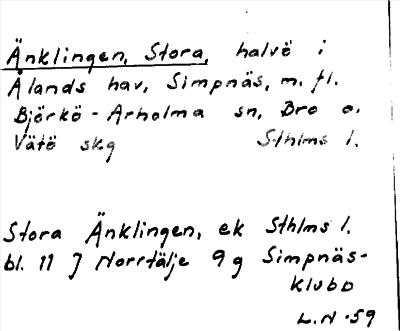 Änklingen, Stora, halvö i
Ålands hav, Simpnäs, m. fl.
Björkö - Arholma sn, Bro o.
Vätö skg Sthlms l.
Stora Änklingen, ek Sthlms l.
bl. 11 J Norrtälje 9 g Simpnäs-
klubb
L.N. 59